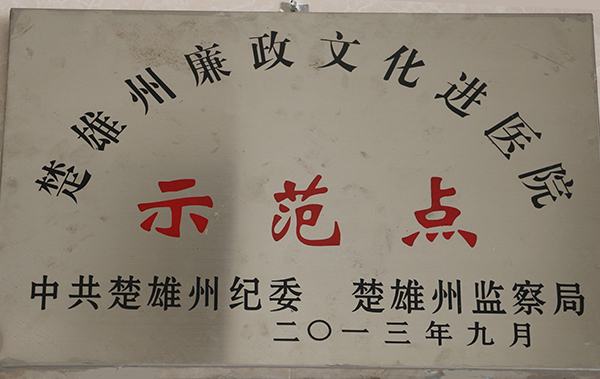 楚雄州廉政文化进医院
示范点
中共楚雄州纪委 楚雄州监察局
二〇一三年九月